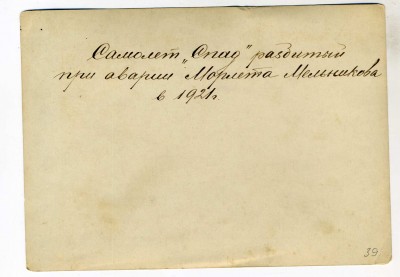 Самолет „Спад" разбитый
при аварии Морлета Мельникова
в 1921г
39